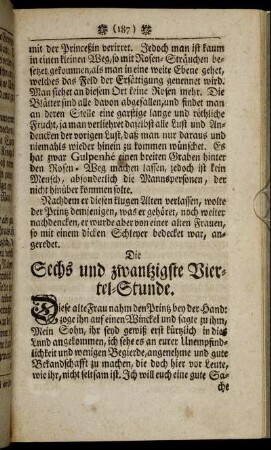 (187)
mit der Princeßin verirret. Jedoch man ist kaum
in einen kleinen Weg, so mit Rosen-Sträuchen be-
setzet, gekommen, als man in eine weite Ebene gehet,
welches das Feld der Ersättigung genennet wird.
Man siehet an diesem Ort keine Rosen mehr. Die
Blätter sind alle davon abgefallen, und findet man
an deren Stelle eine garstige lange und röthliche
Frucht, ja man verliehret daselbst alle Lust und An-
dencken der vorigen Lust, daß man nur daraus und
niemahls wieder hinein zu kommen wünschet. Es
hat zwar Gulpenhé einen breiten Graben hinter
den Rosen-Weg machen lassen, jedoch ist kein
Mensch, absonderlich die Mannspersonen, der
nicht hinüber kommen solte.
Nachdem er diesen klugen Alten verlassen, wolte
der Printz demjenigen, was er gehöret, noch weiter
nachdencken, er wurde aber von einer alten Frauen,
so mit einem dicken Schleyer bedecket war, an-
geredet.
Die
Sechs und zwantzigste Vier-
tel-Stunde.
Diese alte Frau nahm den Printz bey der Hand:
zoge ihn auf einen Winckel und sagte zu ihm,
Mein Sohn, ihr seyd gewiß erst kürtzlich in dis
Land angekommen, ich sehe es an eurer Unempfind-
lichkeit und wenigen Begierde, angenehme und gute
Bekandschafft zu machen, die doch hier vor Leute,
wie ihr, nicht seltsam ist. Ich will euch eine gute Sa-
che